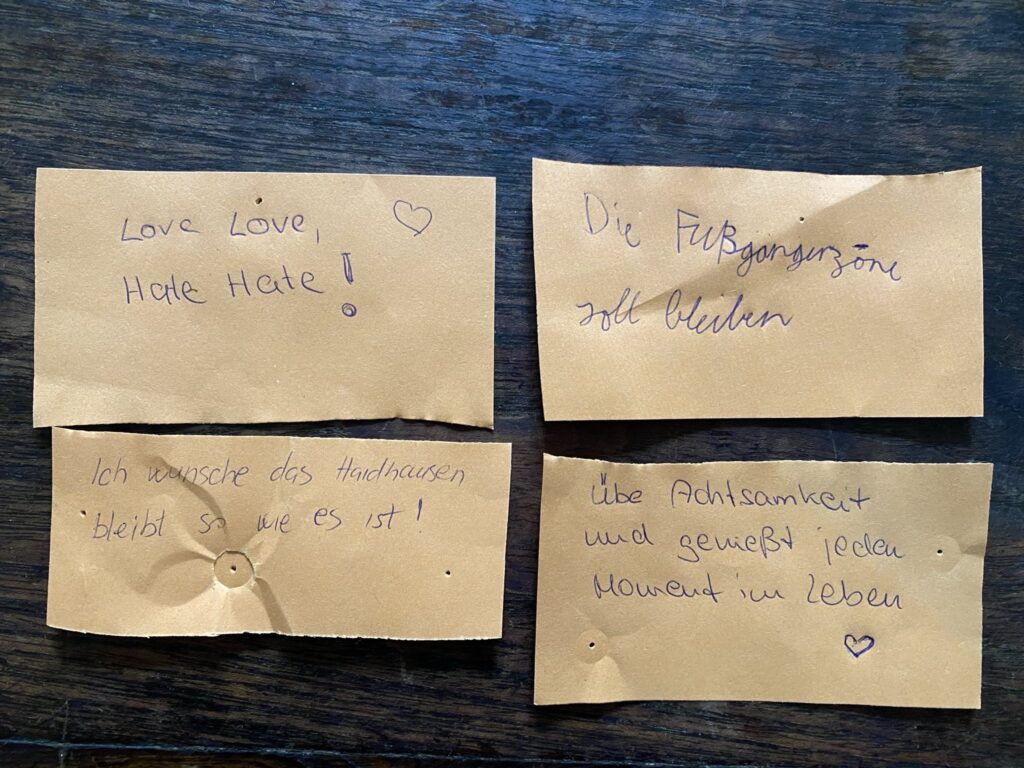 Love Love,
Hate Hate!
Die Fußgangerzone
soll bleiben
Ich wunsche das Haidhausen
bleibt so wie es ist!
Übe Achtsamkeit
und genießt jeden
Moment im Leben